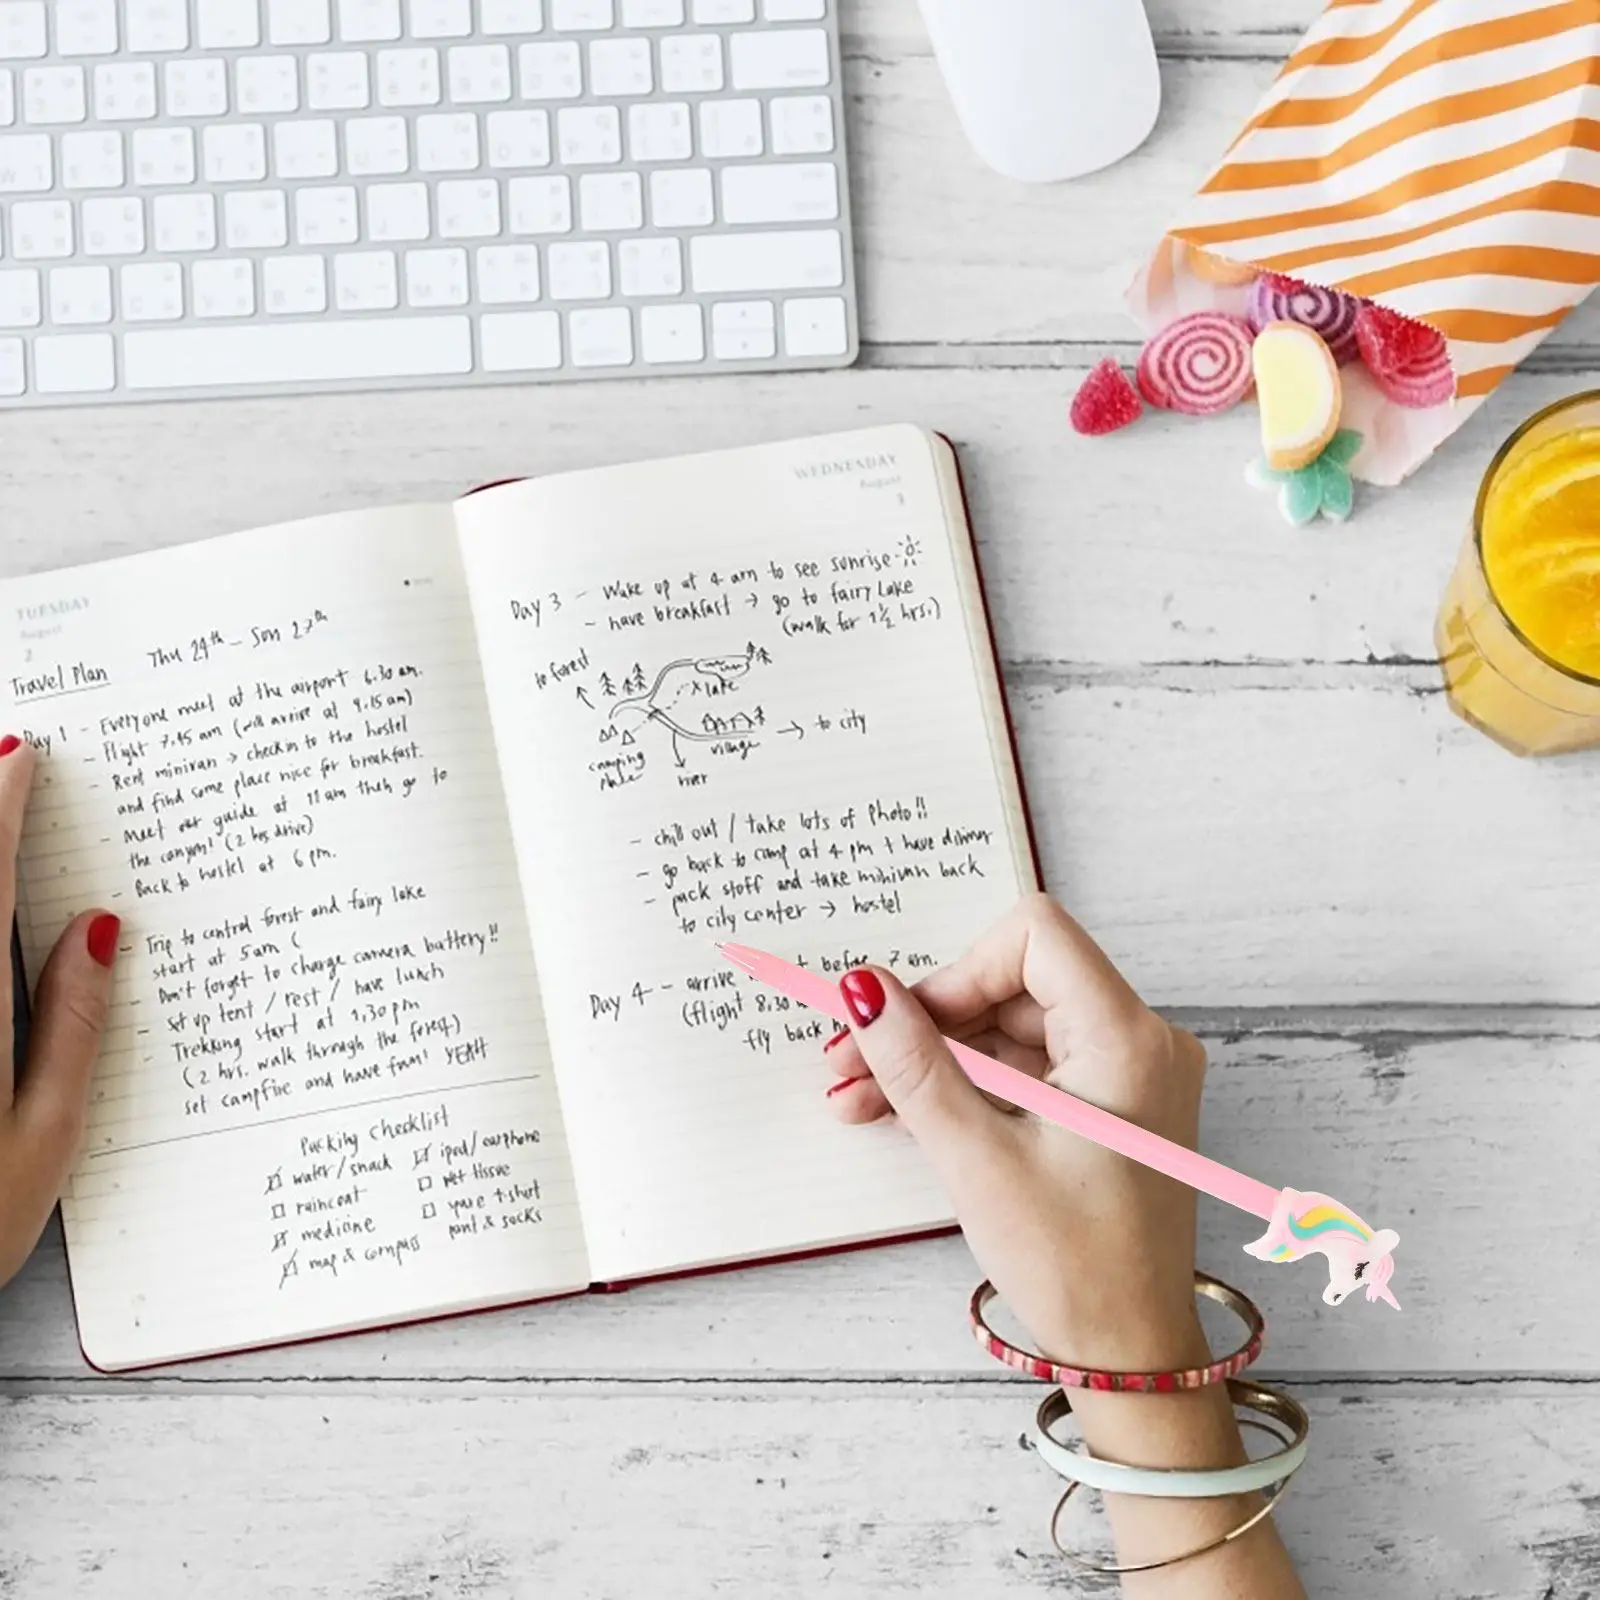 TUESDAY
August
2
Travel Plan Thu 24th - Sun 27th
Day 1 - Everyone meet at the airport 6.30 am.
- Flight 7.45 am (will arrive at 9.15 am)
- Rent minivan → checkin to the hostel
and find some place nice for breakfast.
- Meet our guide at 11 am then go to
the canyon! (2 hrs drive)
- Back to hostel at 6 pm.
- Trip to central forest and fairy lake
start at 5am (
- Don't forget to charge camera battery!!
- set up tent / rest / have lunch
- Trekking start at 1,30pm
(2 hrs. walk through the forest)
set campfire and have fun! YEAH
Packing Checklist
water/snack
ipod/earphone
raincoat
wet tissue
medicine
spare t-shirt
pant & socks
map & compass
WEDNESDAY
August
3
Day 3 - Wake up at 4 am to see sunrise
- have breakfast → go to fairy Lake
(walk for 1½ hrs.)
to forest
x lake
camping
place
village
→ to city
river
- chill out / take lots of photo!!
- go back to camp at 4 pm + have dinner
- pack stuff and take minivan back
to city center → hostel
Day 4 - arrive before 7 am.
(flight 8,30
fly back